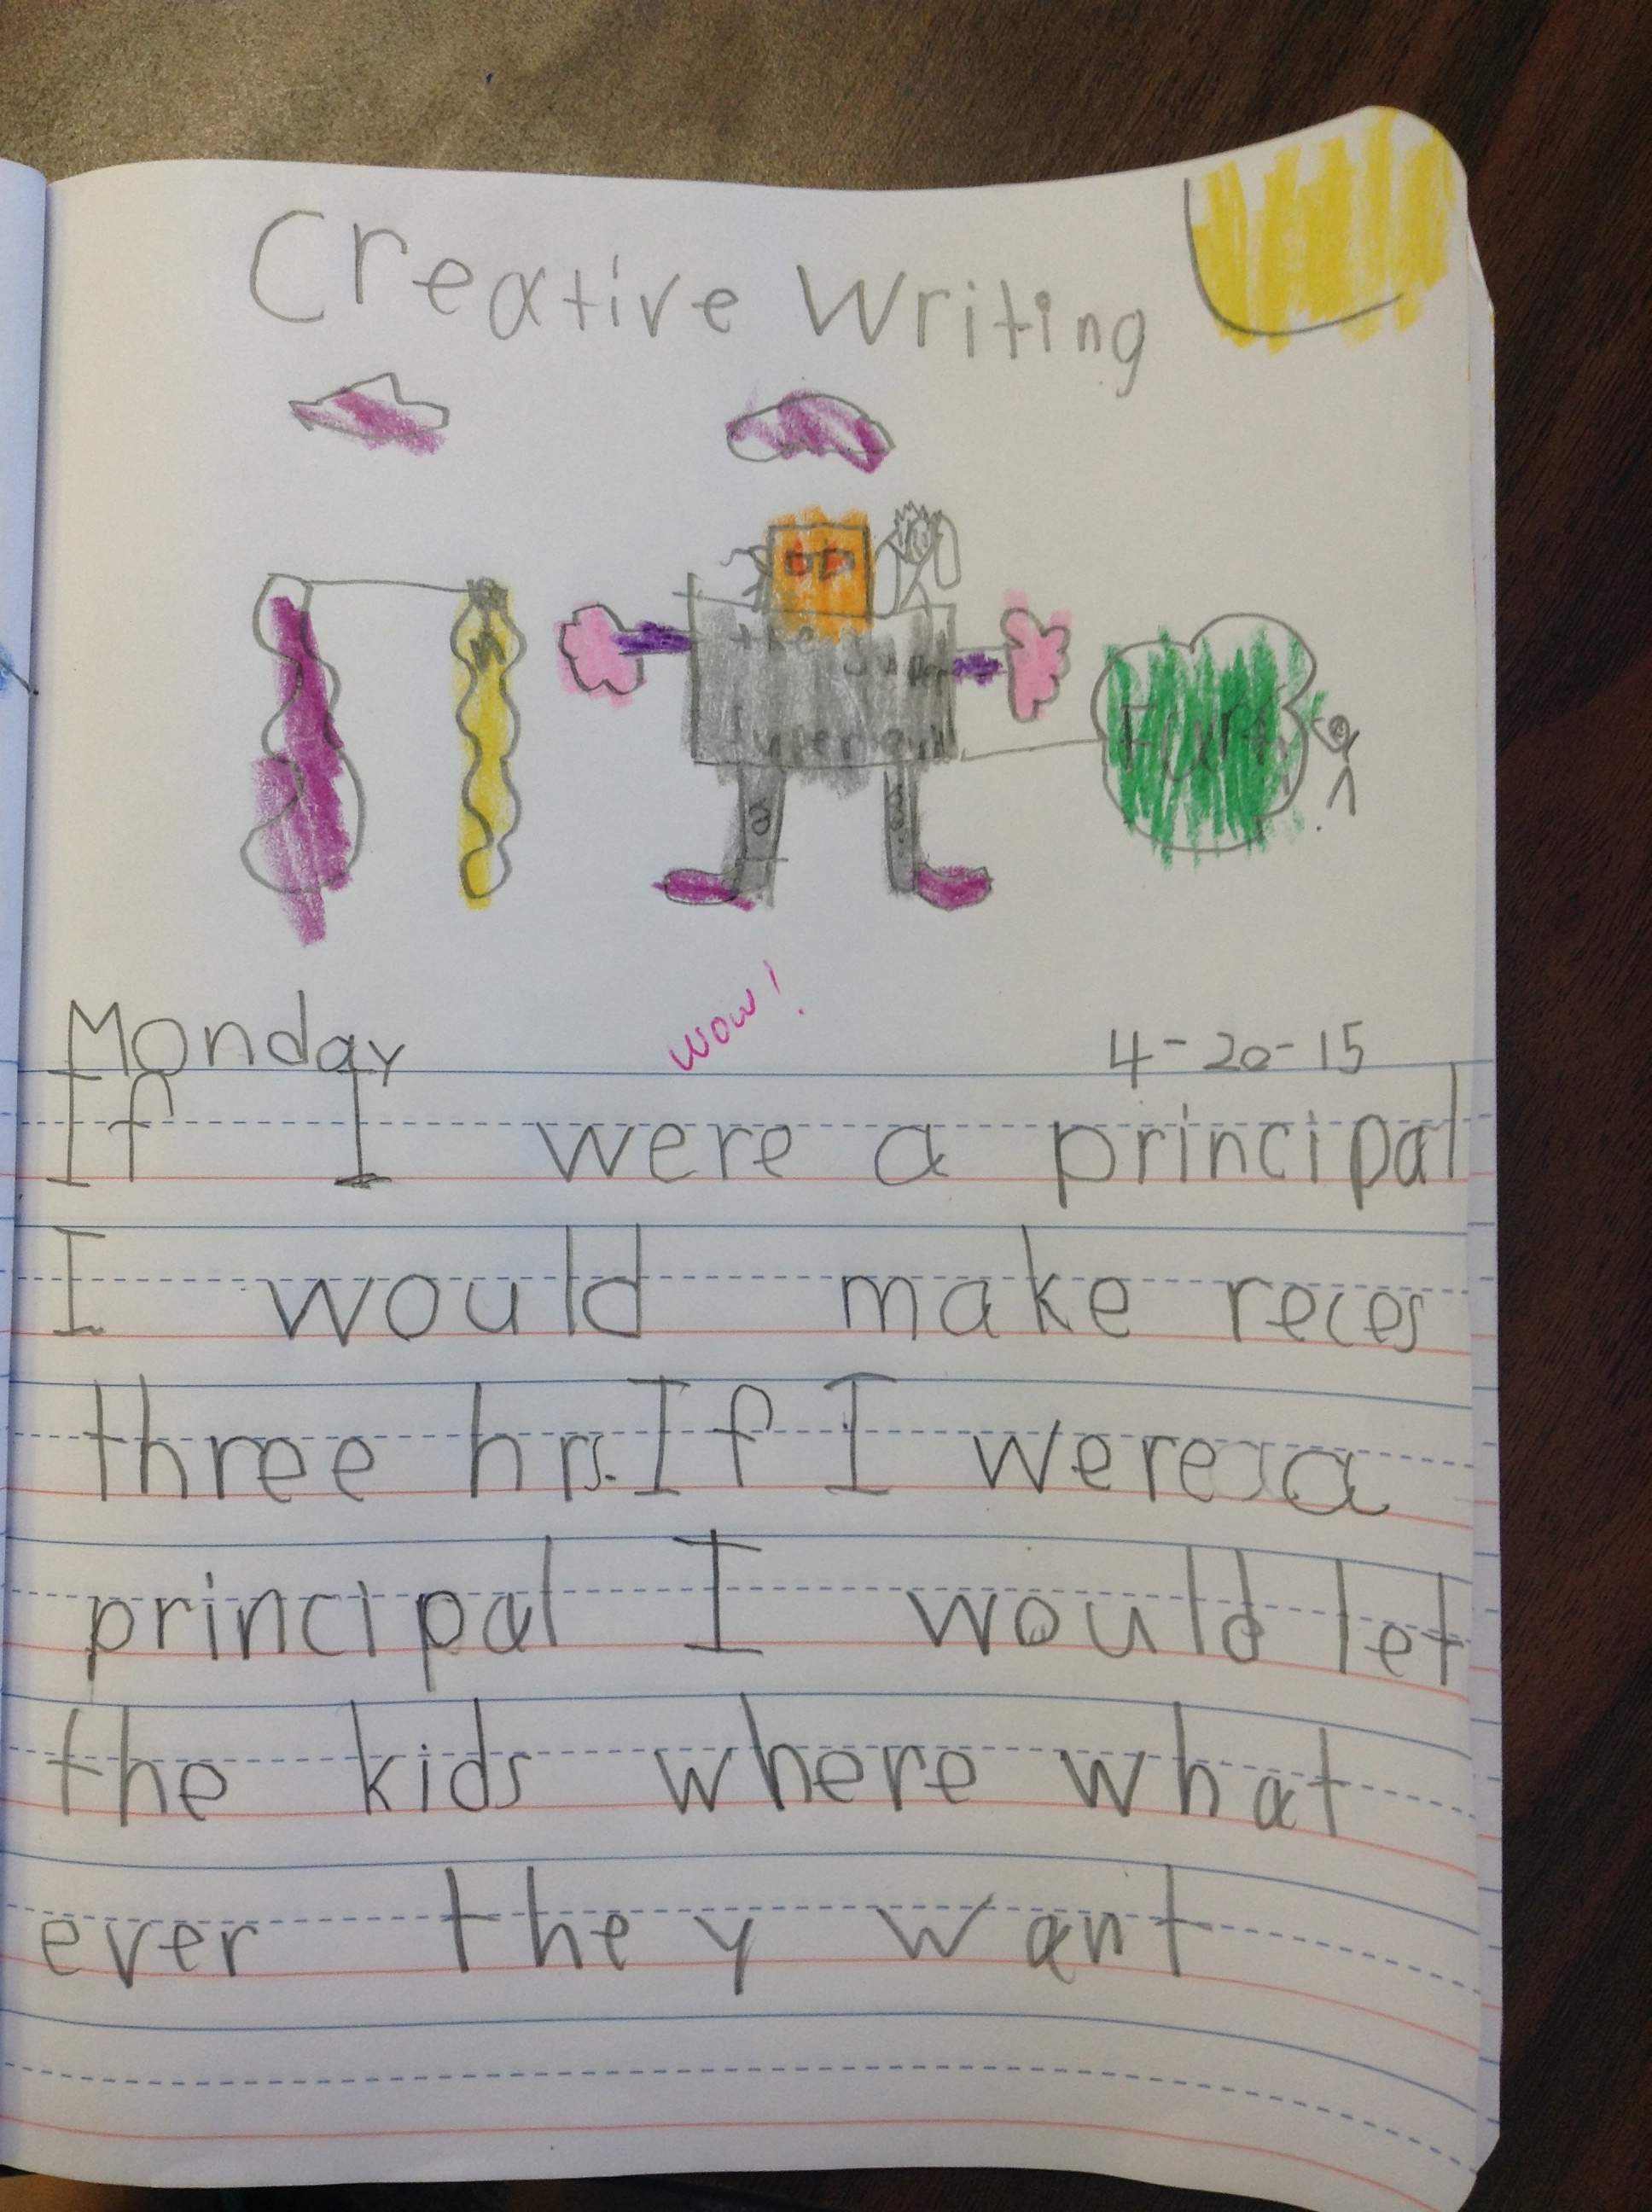 Creative Writing
Fart
wow!
Monday 4-20-15
If I were a principal
I would make reces
three hrs. If I were a
principal I would let
the kids where what
ever they want